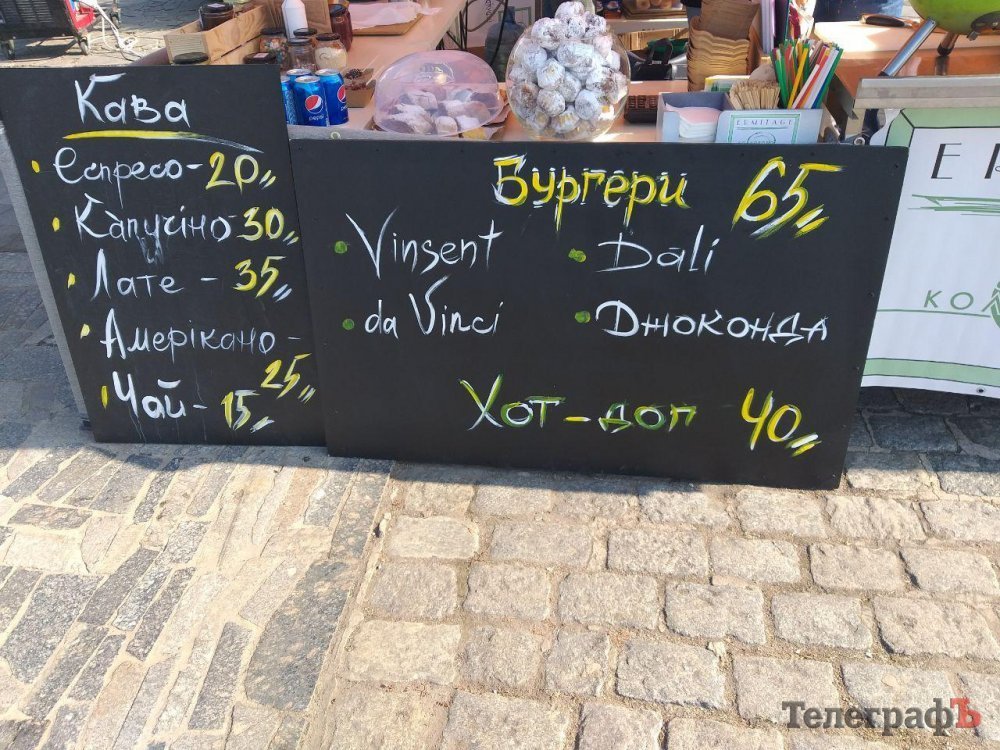 Кава
Еспресо - 20,,
Капучіно 30,,
Лате - 35,,
Амерікано -
25,,
Чай - 15,,
Бургери 65,,
Vinsent
Dali
da Vinci
Джоконда
Хот-доп 40,,
pepsi
pepsi
ERMITAGE
ТелеграфЪ